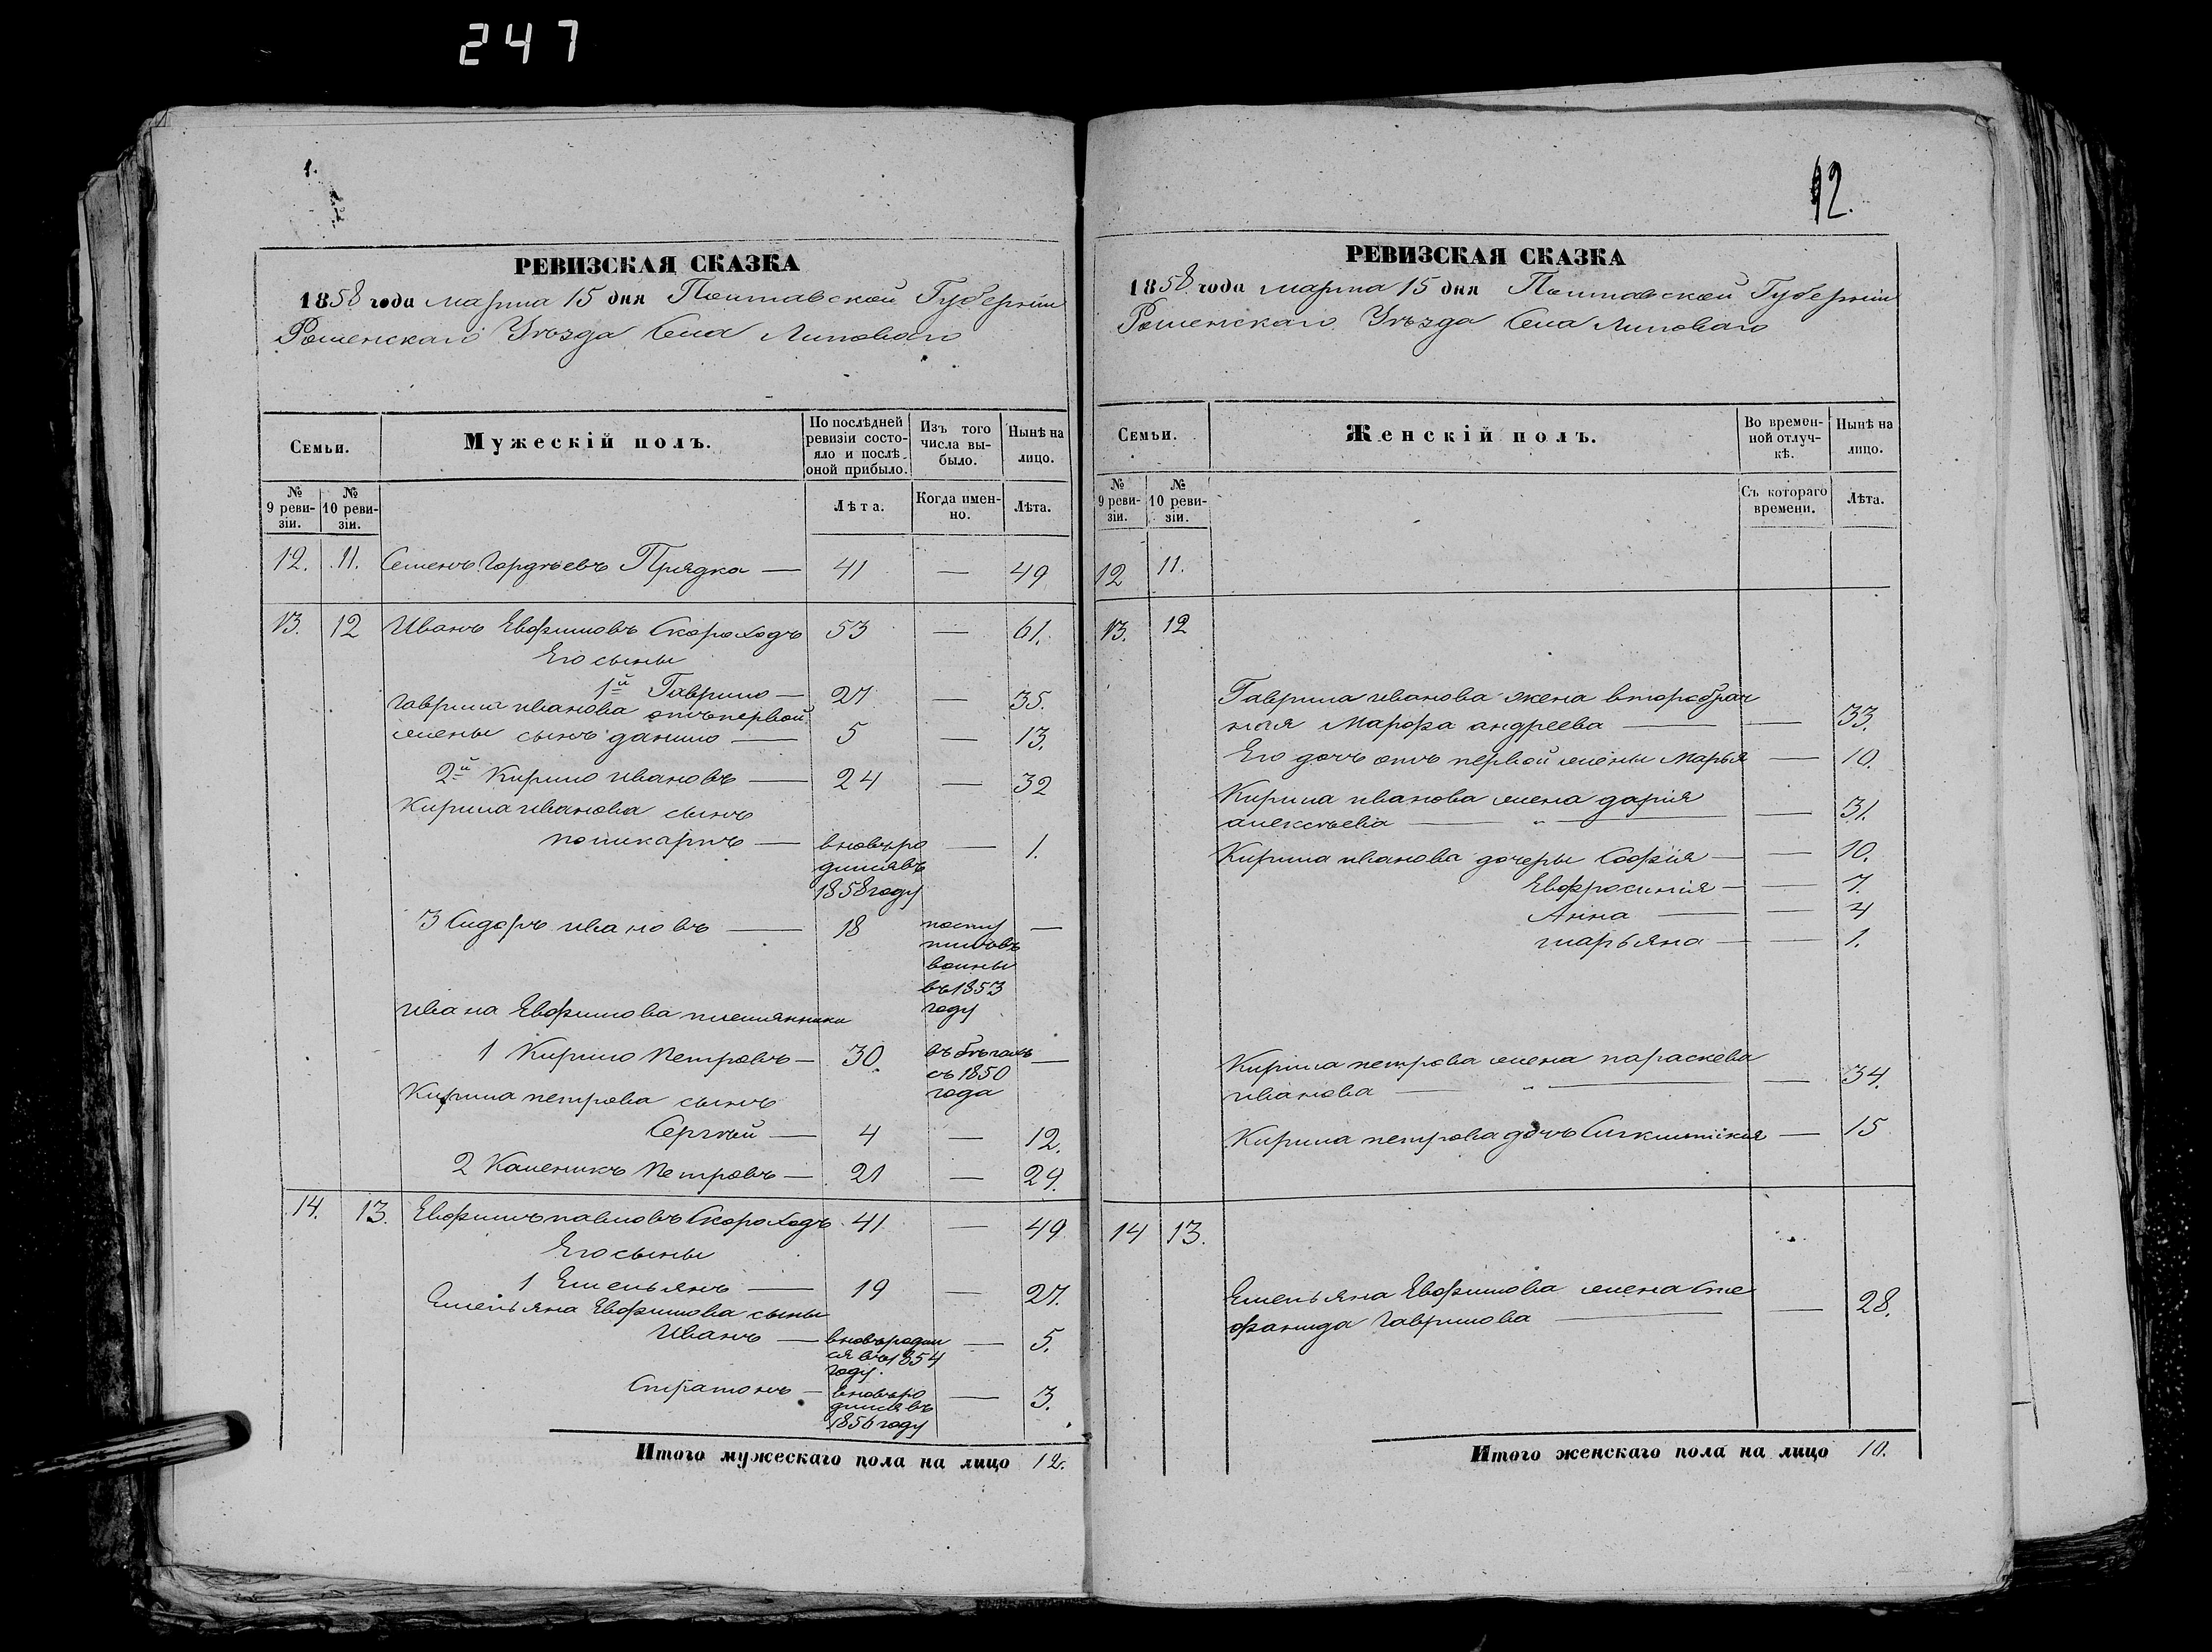 247
1.
РЕВИЗСКАЯ СКАЗКА
1858 года марта 15 дня Полтавской Губерніи
Роменскаго Уѣзда Села Липоваго
Семьи.
Мужескій полъ.
По послѣдней ревизіи состояло и послѣ оной прибыло.
Изъ того числа выбыло.
Нынѣ на лицо.
№ 9 ревизіи.
№ 10 ревизіи.
Лѣта.
Когда именно.
Лѣта.
12. 11. Семенъ Гордѣевъ Прядка — 41 — 49
13. 12 Иванъ Евфимовъ Скороходъ 53 — 61.
Его сыны
1й Гаврило — 27 — 35.
Гаврила иванова отъ первой
жены сынъ данило — 5 — 13.
2й Кирило ивановъ — 24 — 32
Кирила иванова сынъ
поликарпъ — вновь ро — 1.
дился въ
1858 году
3 Сидоръ ивановъ — 18 посту —
пилъ въ
воины
въ 1853
году
ивана Евфимова племянники
1 Кирило петровъ — 30. въ бѣгахъ —
съ 1850
года
Кирила петрова сынъ
Сергѣй — 4 — 12.
2 Каленикъ петровъ — 21 — 29.
14. 13. Евфимъ павловъ Скороходъ 41 — 49
Его сыны
1 Емельянъ — 19 — 27.
Емельяна Евфимова сыны
Иванъ — вновь родил — 5.
ся въ 1854
году.
Стратонъ — вновь ро — 3.
дился въ
1856 году
Итого мужескаго пола на лицо 12.
12.
РЕВИЗСКАЯ СКАЗКА
1858 года марта 15 дня Полтавской Губерніи
Роменскаго Уѣзда Села Липоваго
Семьи.
Женскій полъ.
Во временной отлучкѣ.
Нынѣ на лицо.
№ 9 ревизіи.
№ 10 ревизіи.
Съ котораго времени.
Лѣта.
12 11.
13. 12
Гаврила иванова жена второбрач
ная Марфа андреева — — 33.
Его дочь отъ первой жены Марья — 10.
Кирила иванова жена дарія
алексѣева — " — — 31.
Кирила иванова дочери Софія — — 10.
Евфросинія — — 7.
Анна — — 4
марьяна — — 1.
Кирила петрова жена параскева
иванова — " — — 34.
Кирила петрова дочь — 15
14 13.
Емельяна Евфимова жена Сте
фанида Гаврилова — — 28.
Итого женскаго пола на лицо 10.